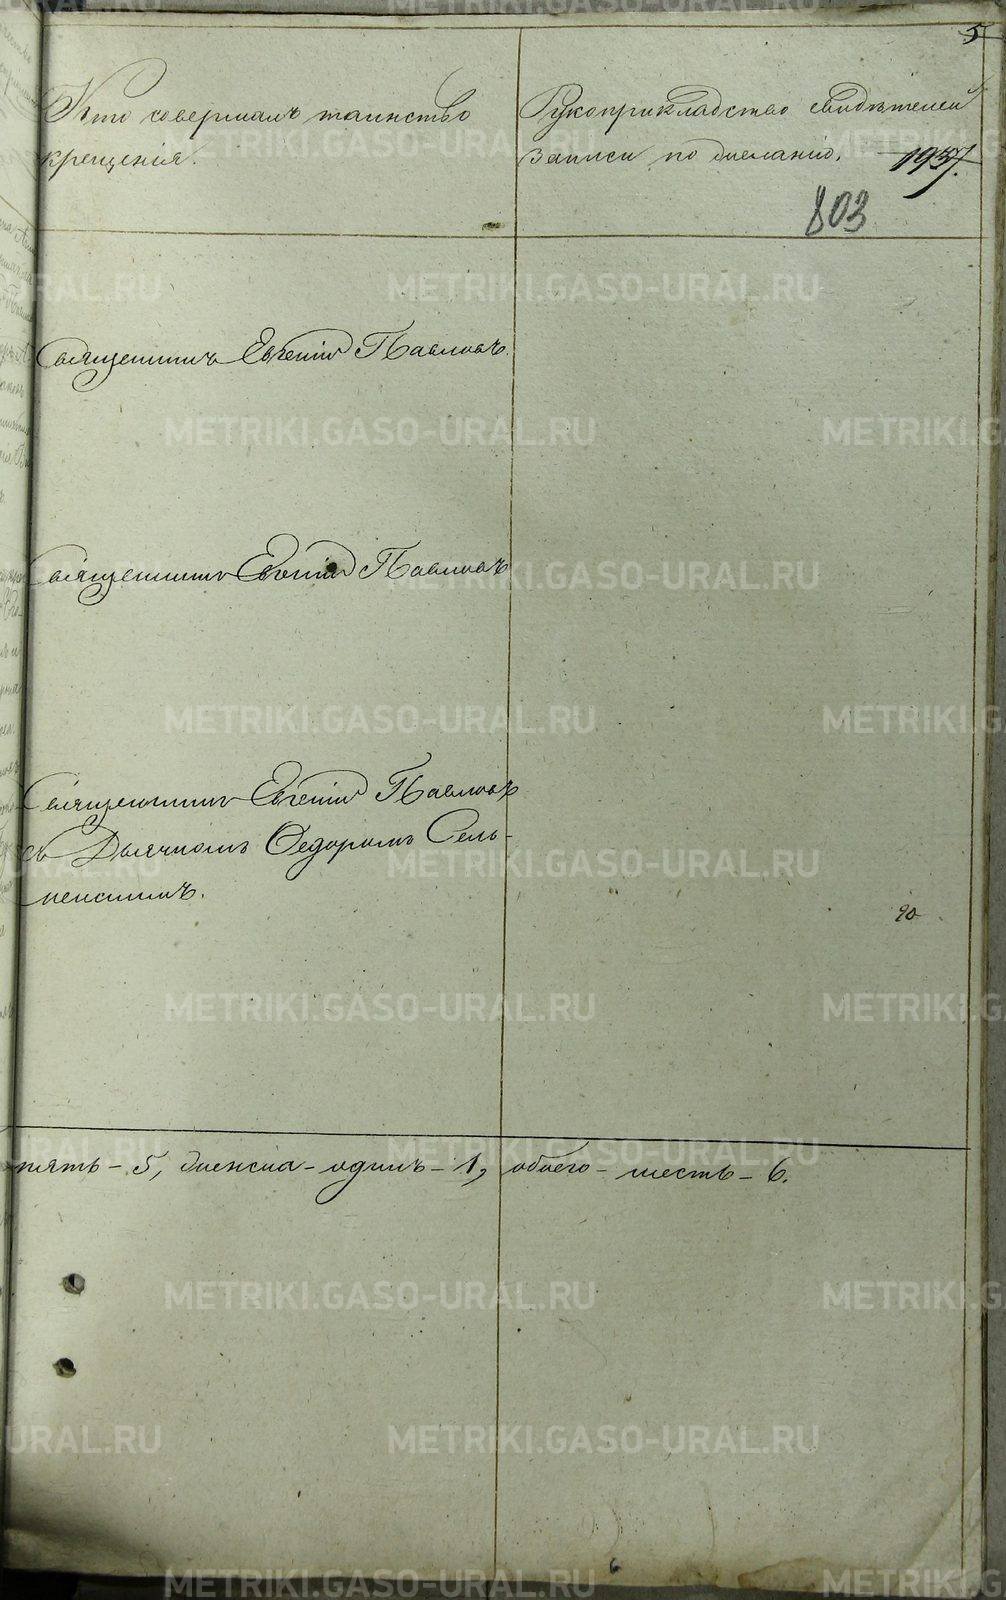 5
Кто совершалъ таинство
крещенія.
Рукоприкладство свидѣтелей
записи по желанію.
1957.
803
Священникъ Евгеній Павловъ.
Священникъ Евгеній Павловъ
Священникъ Евгеній Павловъ
съ Дьячкомъ Ѳедоромъ Сель-
менскимъ.
90
пять - 5, женска - одинъ - 1, обоего - шесть - 6.
METRIKI.GASO-URAL.RU